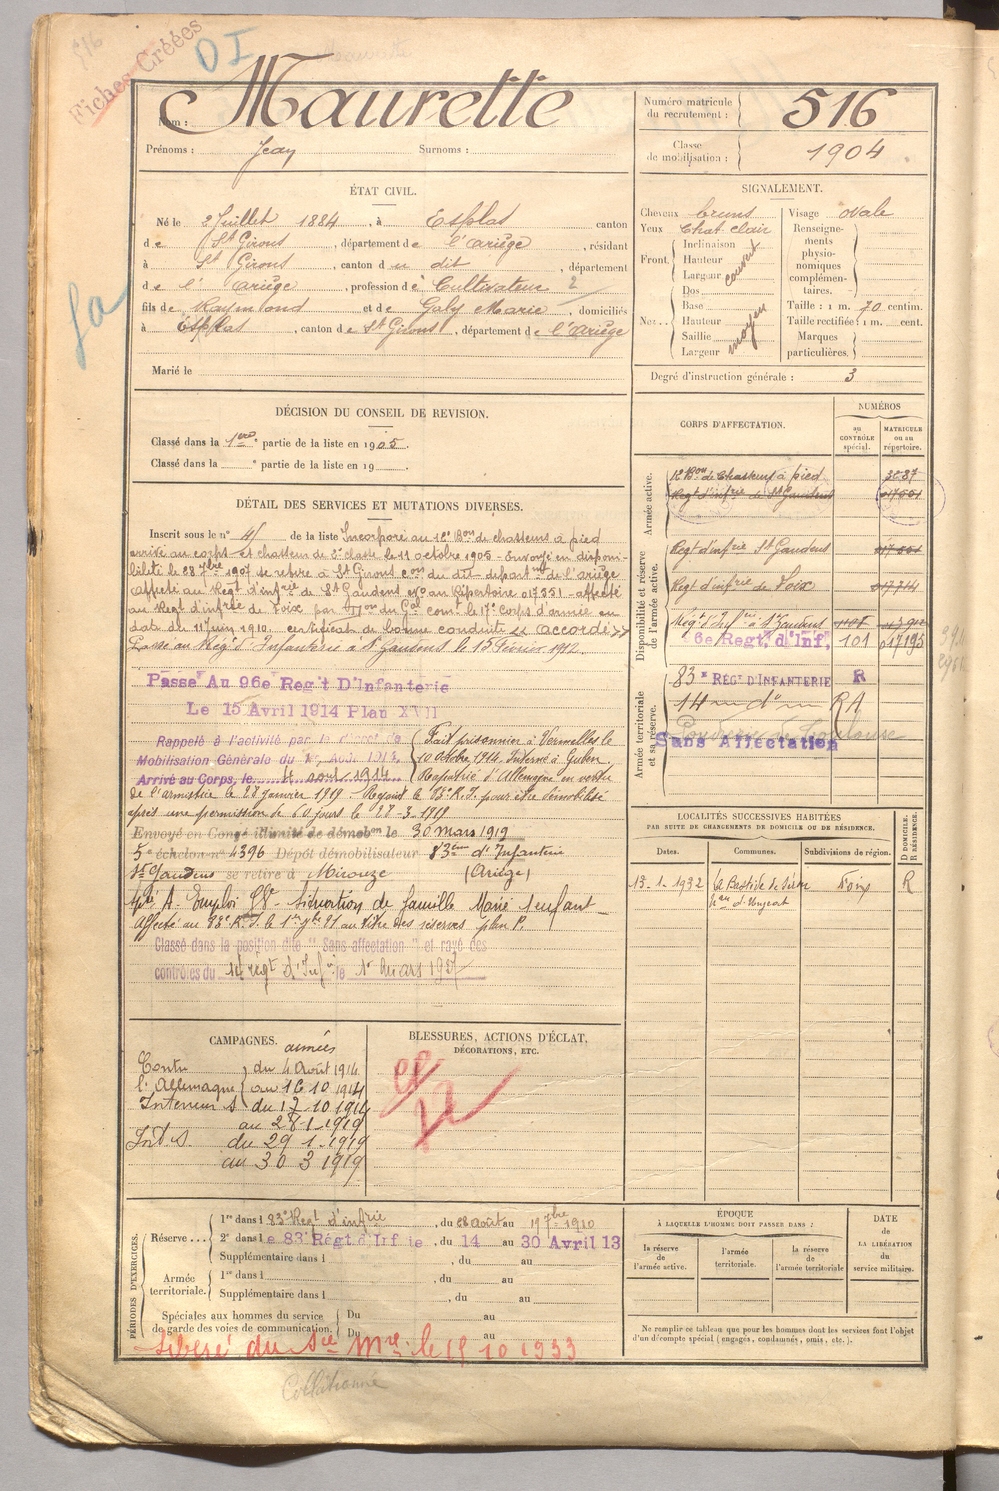 Fiches Créées
DI
Nom : Maurette
Prénoms : Jean Surnoms :
Numéro matricule du recrutement : 516
Classe de mobilisation : 1904
ÉTAT CIVIL.
Né le 2 Juillet 1884, à Esplas canton
de St Girons, département de l'ariège, résidant
à St Girons, canton du dit, département
de l'ariège, profession de Cultivateur
fils de Raymond et de Galy Marie, domiciliés
à Esplas, canton de St Girons, département de l'ariège
Marié le
SIGNALEMENT.
Cheveux bruns Visage ovale
Yeux Chat clair Renseignements physionomiques complémentaires.
Front. Inclinaison
Hauteur
Largeur couvert
Nez. Dos
Base
Hauteur
Saillie moyen
Largeur
Taille : 1 m. 70 centim.
Taille rectifiée : 1 m. cent.
Marques particulières.
Degré d'instruction générale : 3
DÉCISION DU CONSEIL DE REVISION.
Classé dans la 1ère partie de la liste en 1905.
Classé dans la e partie de la liste en 19
DÉTAIL DES SERVICES ET MUTATIONS DIVERSES.
Inscrit sous le n° de la liste Incorporé au 12e Bon de chasseurs à pied
arrivé au corps et chasseur de 2e classe le 11 octobre 1905 - Envoyé en disponi-
bilité le 28 7bre 1907 se retire à St Girons con du dit départ mt de l'ariège
affecté au Régt d'infrie de St Gaudens No au Répertoire 017351 - affecté
au Régt d'infrie de Foix par Don du Gal comt le 17e Corps d'armée en
date du 11 juin 1910. certificat de bonne conduite " accordé "
Passé au Régt d'Infanterie à St Gaudens le 15 Février 1912
Passé Au 96e Reg't D'Infanterie
Le 15 Avril 1914 Plan XVII
Rappelé à l'activité par le décret de
Mobilisation Générale du 1er Août 1914,
Arrivé au Corps, le 4 août 1914
Fait prisonnier à Vermelles le
10 octobre 1914. Interné à Guben.
Rapatrié d'Allemagne en vertu
de l'armistice le 27 janvier 1919. Rejoint le 83e R.I. pour être démobilisé
après une permission de 60 jours le 27-3-1919
Envoyé en Congé illimité de démobon le 30 mars 1919
5e échelon n° 4396 Dépôt démobilisateur 83ème d'Infanterie
St Gaudens se retire à Mirouze (Ariège)
Situation de famille Marié 1 enfant
Affecté au 83e R.I. le 1er 21 au titre des réserves plan P.
Classé dans la position dite "Sans affectation" et rayé des
contrôles du 14 régt d'Infie le 1er mars 1927
CORPS D'AFFECTATION.
NUMÉROS
au CONTRÔLE spécial.
MATRICULE ou au répertoire.
Armée active.
12e Bon de Chasseurs à pied 3587
Régt d'infrie de St Gaudens
Disponibilité et réserve de l'armée active.
Régt d'infrie St Gaudens
Régt d'infrie de Foix 017714
Régt d'Infrie à St Gaudens
6e Regt, d'Inf, 101 017195
Armée territoriale et sa réserve.
83e RÉGT D'INFANTERIE R
14 — d° — RA
Sans Affectation
LOCALITÉS SUCCESSIVES HABITÉES
PAR SUITE DE CHANGEMENTS DE DOMICILE OU DE RÉSIDENCE.
D DOMICILE. R RÉSIDENCE.
Dates. Communes. Subdivisions de région.
13-1-1932 La Bastide de Sérou Foix R
CAMPAGNES.
armées
Contre l'Allemagne du 4 Août 1914
au 16 10 1914
Intérieur S du 17 10 1914
au 28 1 1919
du 29 1 1919
au 30 3 1919
BLESSURES, ACTIONS D'ÉCLAT,
DÉCORATIONS, ETC.
PÉRIODES D'EXERCICES.
Réserve... 1re dans l 83e Régt d'infrie, du 28 août au 19 7bre 1910
2e dans l e 83 Régt d'Inf ie, du 14 au 30 Avril 13
Supplémentaire dans l , du au
Armée territoriale. 1re dans l , du au
Supplémentaire dans l , du au
Spéciales aux hommes du service Du au
de garde des voies de communication. Du au
Libéré du Sce Mre le 15 10 1933
ÉPOQUE
À LAQUELLE L'HOMME DOIT PASSER DANS :
la réserve de l'armée active.
l'armée territoriale.
la réserve de l'armée territoriale
DATE DE LA LIBÉRATION du service militaire.
Ne remplir ce tableau que pour les hommes dont les services font l'objet
d'un décompte spécial (engagés, condamnés, omis, etc.).